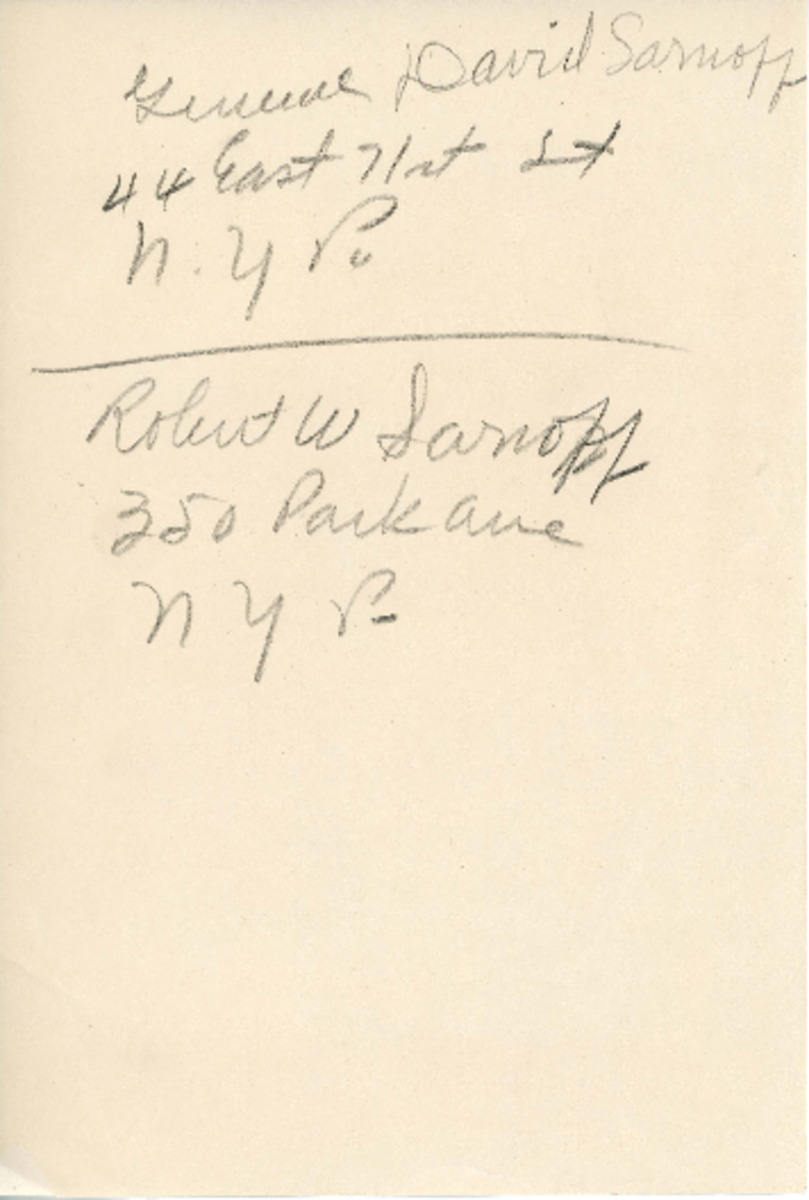 General David Sarnoff
44 East 71st St
N. Y
Robert W Sarnoff
350 Park Ave
N Y